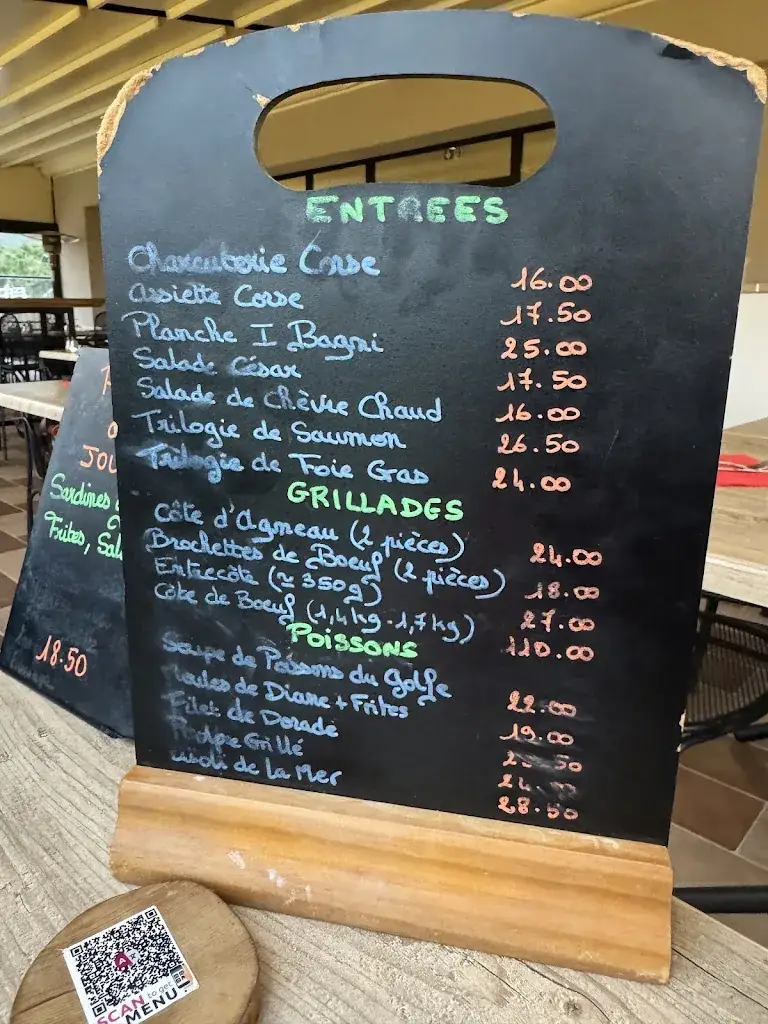 ENTREES
Charcuterie Corse 16.00
Assiette Corse 17.50
Planche I Bagni 25.00
Salade César 17.50
Salade de Chèvre Chaud 16.00
Trilogie de Saumon 26.50
Trilogie de Foie Gas 24.00
GRILLADES
Côte d'Agneau (2 pièces) 24.00
Brochettes de Boeuf (2 pièces) 18.00
Entrecôte (≃ 350g) 27.00
Côte de Boeuf (1,4kg-1,7kg) 110.00
POISSONS
Soupe de Poissons du Golfe 22.00
Moules de Diane + Frites 19.00
Filet de Dorade
Poulpe Grillé
de La Mer 28.50
JOU
Sardines
Frites, Sal
18.50
SCAN to get
MENU